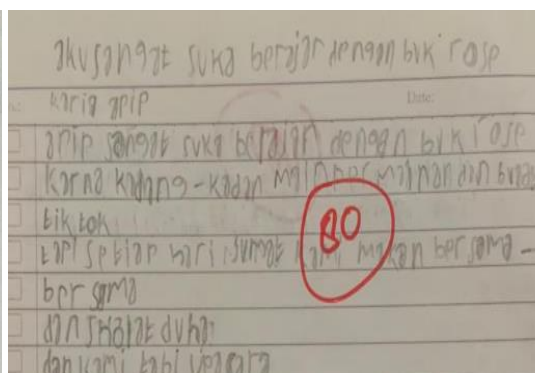 akusangat suka berajar dengan buk rose
karia arip
Date:
arip sangat suka berajar dengan buk rose
karna kadang-kadan main permainan dan buat
tiktok
tapi setiap hari sumat kami makan bersama-
80
bersama
dan skolat duha
dan kami tapi upacara